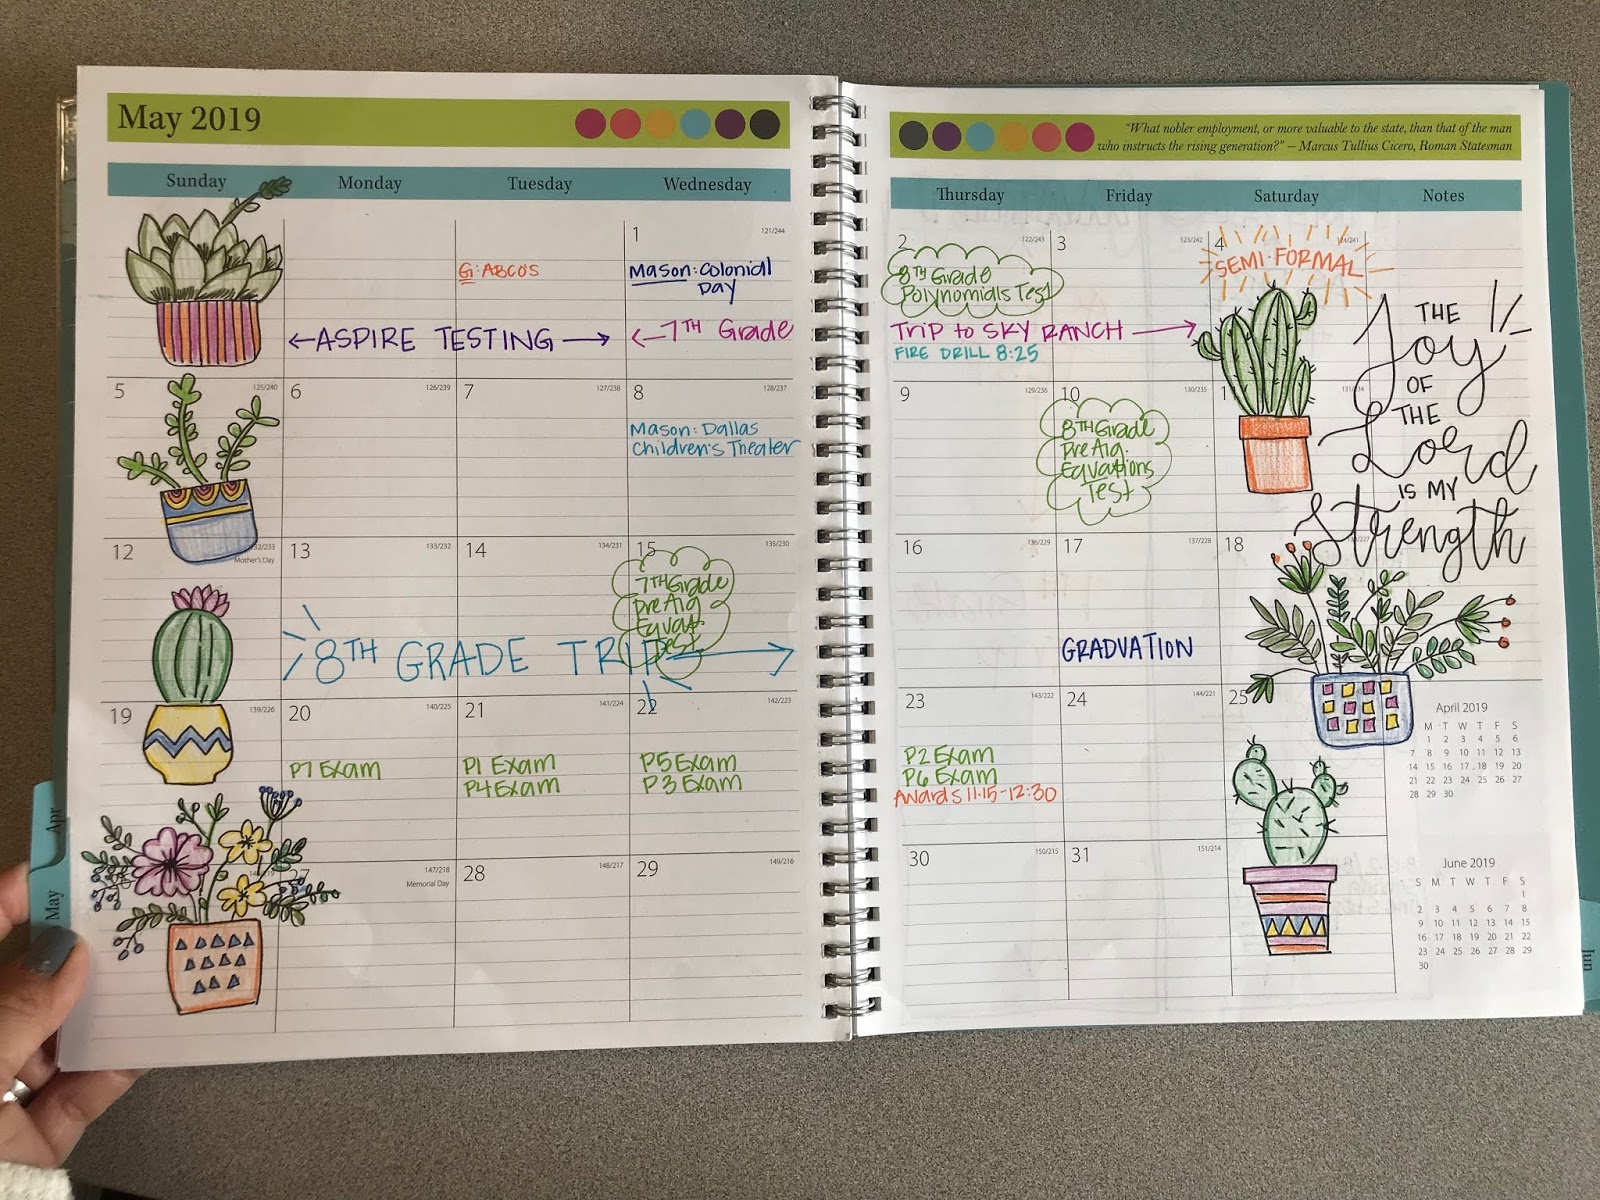 May 2019
"What nobler employment, or more valuable to the state, than that of the man
who instructs the rising generation?" – Marcus Tullius Cicero, Roman Statesman
Sunday Monday Tuesday Wednesday
Thursday Friday Saturday Notes
1 121/244
G: ABCO'S
Mason: Colonial
Day
←ASPIRE TESTING→
←7TH Grade
2 122/243
8TH Grade
Polynomials Test
Trip to SKY RANCH→
FIRE DRILL 8:25
3 123/242
4 124/241
SEMI-FORMAL
THE
Joy
OF
THE
Lord
IS MY
Strength
5 125/240
6 126/239
7 127/238
8 128/237
Mason: Dallas
Children's Theater
9 129/236
10 130/235
8TH Grade
Pre Alg.
Equations
Test
131/234
12 132/233
Mother's Day
13 133/232
14 134/231
15 135/230
7TH Grade
Pre Alg
Equat.
Test
8TH GRADE TRIP→
16 136/229
17 137/228
GRADUATION
18
19 139/226
20 140/225
P7 Exam
21 141/224
P1 Exam
P4 Exam
22 142/223
P5 Exam
P3 Exam
23 143/222
P2 Exam
P6 Exam
Awards 11:15-12:30
24 144/221
25
27 147/218
Memorial Day
28 148/217
29 149/216
30 150/215
31 151/214
April 2019
M T W T F S
1 2 3 4 5 6
7 8 9 10 11 12 13
14 15 16 17 18 19 20
21 22 23 24 25 26 27
28 29 30
June 2019
S M T W T F S
1
2 3 4 5 6 7 8
9 10 11 12 13 14 15
16 17 18 19 20 21 22
23 24 25 26 27 28 29
30
Apr
May
Jun